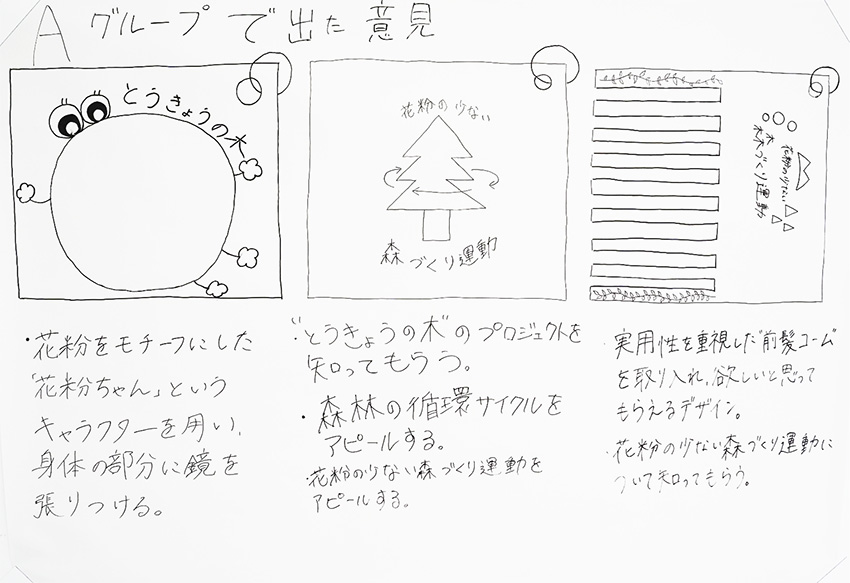 Aグループで出た意見
とうきょうの木
花粉の少ない
森づくり運動
花粉の少ない
木木づくり運動
・花粉をモチーフにした
「花粉ちゃん」という
キャラクターを用い、
身体の部分に鏡を
張りつける。
・"とうきょうの木"のプロジェクトを
知ってもらう。
・森林の循環サイクルを
アピールする。
・花粉の少ない森づくり運動を
アピールする。
・実用性を重視した"前髪コーム"
を取り入れ、欲しいと思って
もらえるデザイン。
・花粉の少ない森づくり運動に
ついて知ってもらう。